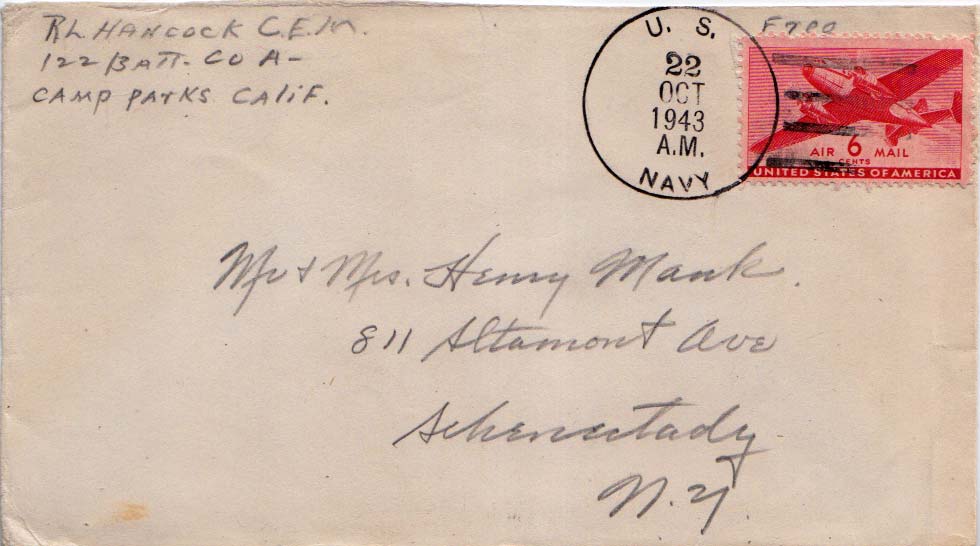 R.L. HANCOCK C.E.M.
122 BATT. CO A-
CAMP PARKS CALIF.
Free
U. S.
22
OCT
1943
A.M.
NAVY
AIR 6 MAIL
CENTS
UNITED STATES OF AMERICA
Mr & Mrs. Henry Mank.
811 Altamont Ave
Schenectady
N.Y.